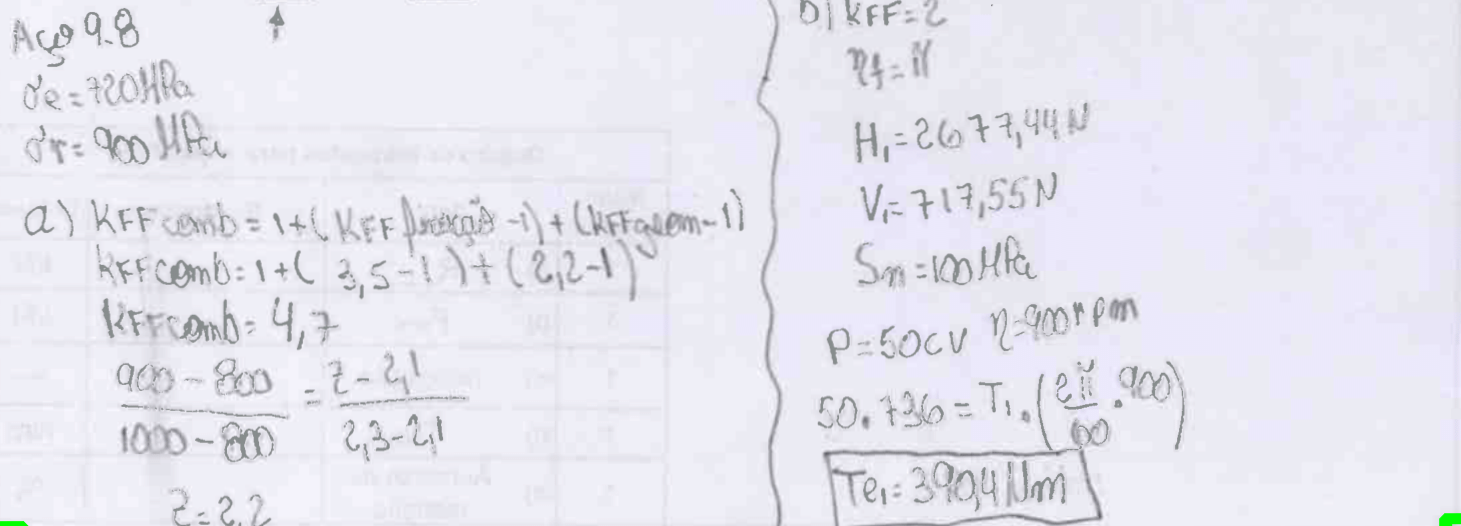 Aço 9.8
σe = 720 MPa
σr = 900 MPa
a) KFF comb = 1+( KFF furação -1) + (KFF geom-1)
KFF comb: 1+( 3,5-1) + (2,2-1)
KFF comb = 4,7
900 - 800 = z - 2,1
1000 - 800 2,3-2,1
z = 2,2
b) KFF = 2
ηf = π
H₁ = 2677,44 N
V₁ = 717,55 N
Sn = 100 MPa
P = 50 CV η = 900 rpm
50.736 = T₁.(2π/60 .900)
Te₁ = 390,4 Nm